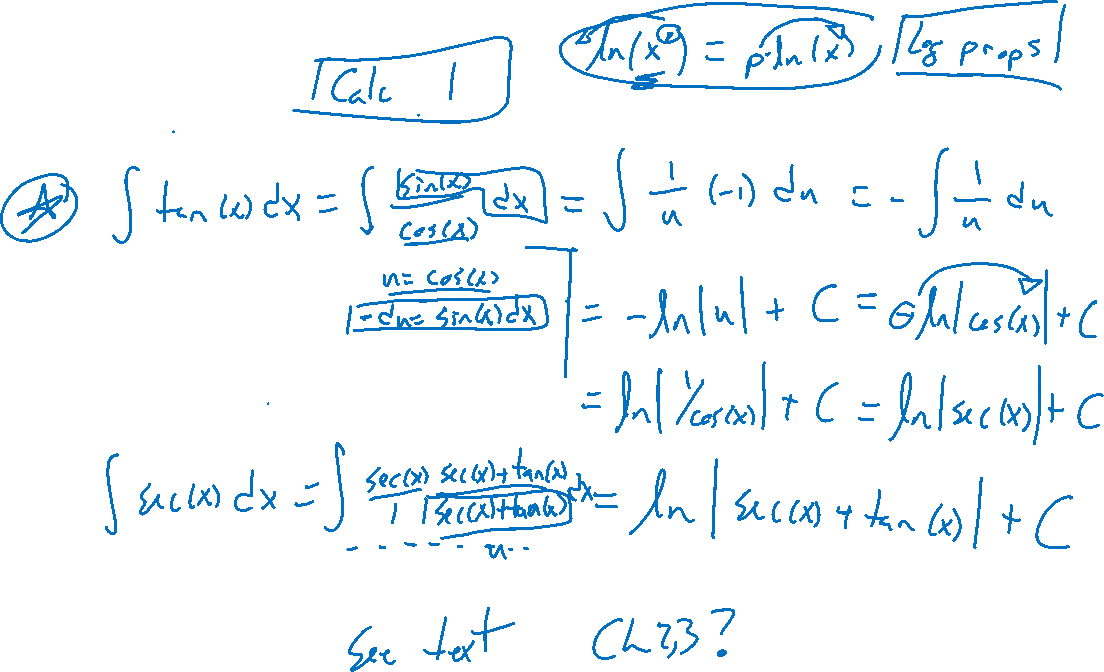 ln(x^p) = p·ln(x) log props
Calc 1
A ∫ tan(x) dx = ∫ sin(x)/cos(x) dx = ∫ 1/u (-1) du = -∫ 1/u du
u = cos(x)
-du = sin(x) dx
= -ln|u| + C = -ln|cos(x)| + C
= ln|1/cos(x)| + C = ln|sec(x)| + C
∫ sec(x) dx = ∫ sec(x)/1 sec(x)+tan(x)/sec(x)+tan(x) dx = ln|sec(x) + tan(x)| + C
u
See text Ch 7,3?